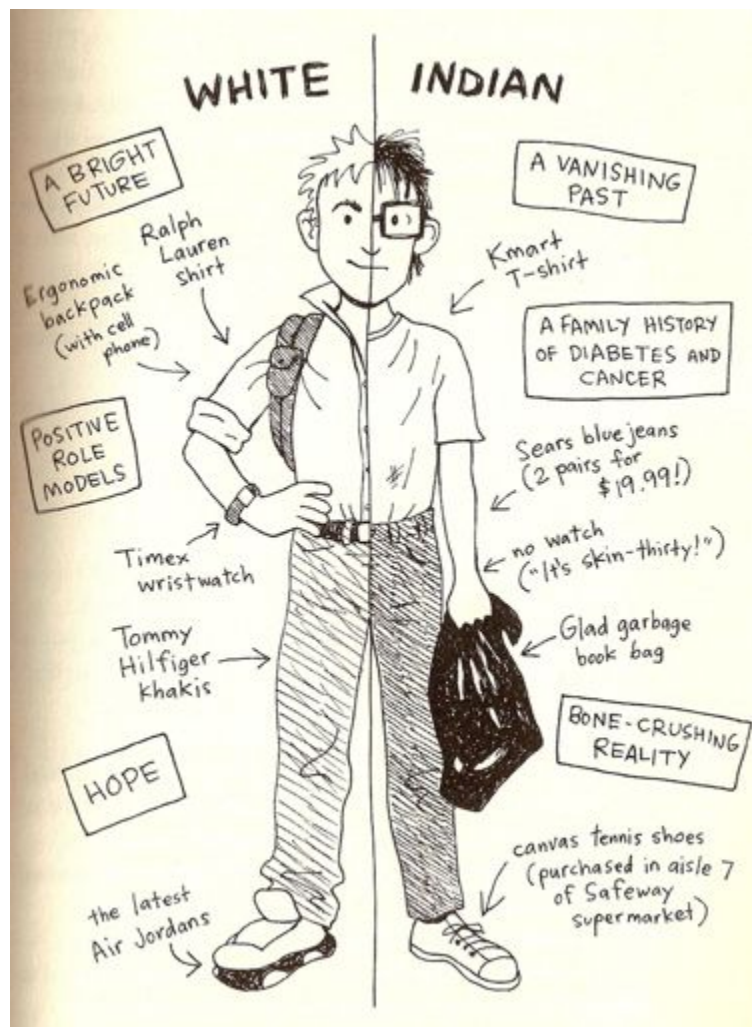 WHITE
INDIAN
A BRIGHT
FUTURE
Ralph
Lauren
shirt
Ergonomic
backpack
(with cell
phone)
POSITIVE
ROLE
MODELS
Timex
wristwatch
Tommy
Hilfiger
khakis
HOPE
the latest
Air Jordans
A VANISHING
PAST
Kmart
T-shirt
A FAMILY HISTORY
OF DIABETES AND
CANCER
Sears blue jeans
(2 pairs for
$19.99!)
no watch
("It's skin-thirty!")
Glad garbage
book bag
BONE-CRUSHING
REALITY
canvas tennis shoes
(purchased in aisle 7
of Safeway
supermarket)